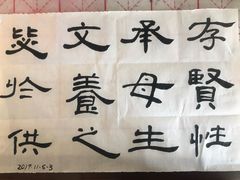 存賢性
承母生
文養之
毖於供
2017-11-5-3